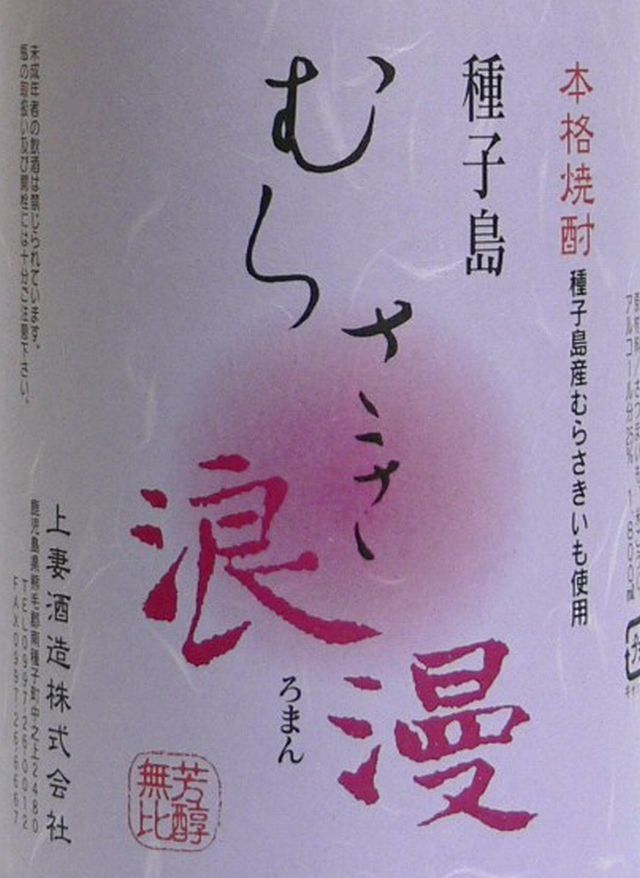 本格焼酎
種子島産むらさきいも使用
種子島
むらさき
浪漫
ろまん
芳醇
無比
上妻酒造株式会社
鹿児島県熊毛郡南種子町中之上2480
TEL0997-26-0012
FAX0997-26-6667
未成年者の飲酒は禁じられています。
瓶の取扱い及び開栓には十分ご注意下さい。